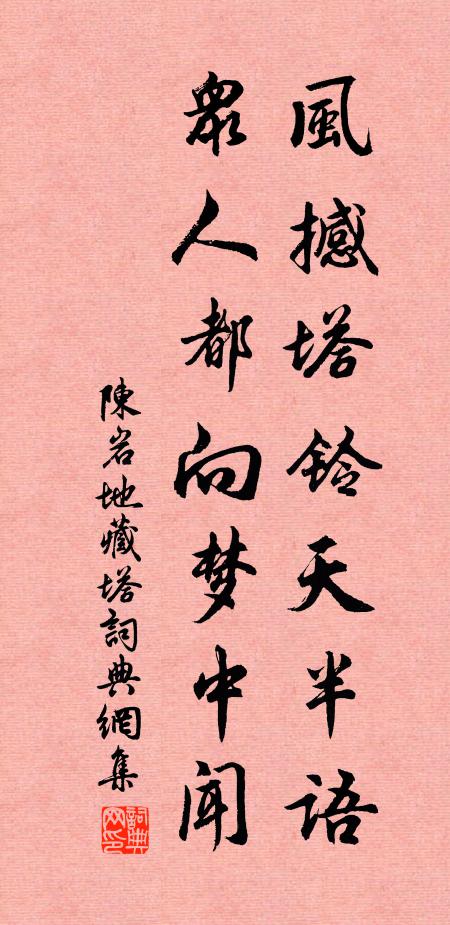 風撼塔鈴天半語
眾人都向梦中闻
陳岩地藏塔詞典網集
詞典网印